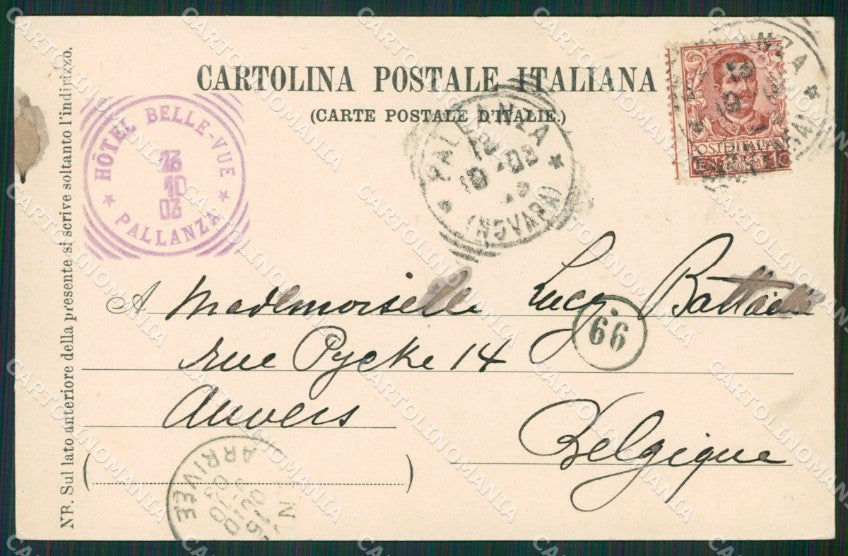 CARTOLINA POSTALE ITALIANA
(CARTE POSTALE D'ITALIE.)
NB. Sul lato anteriore della presente si scrive soltanto l'indirizzo.
HÔTEL BELLE-VUE
13
10
03
★ PALLANZA ★
PALLANZA
(NOVARA)
POSTE ITALIANE
A Mademoiselle Lucy
rue Pycke 14
Anvers
Belgique
66
ARRIVÉE
CARTOLINOMANIA